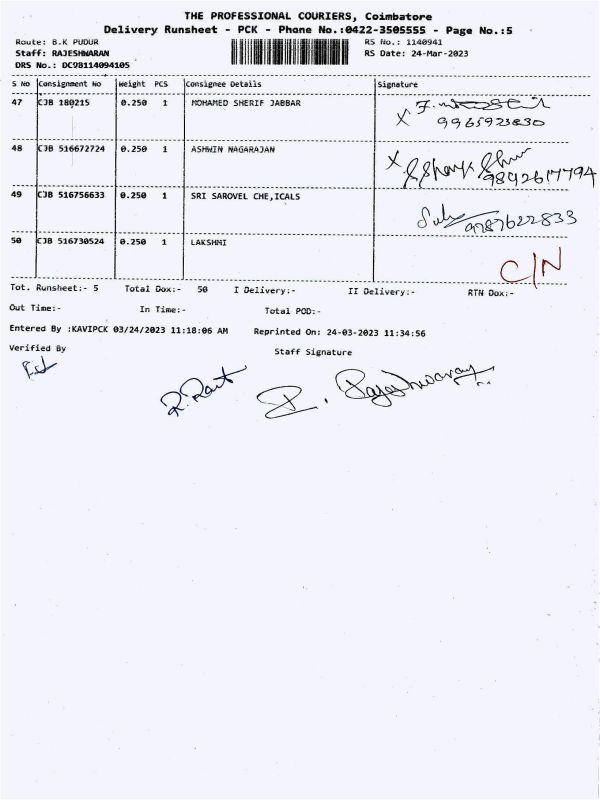 THE PROFESSIONAL COURIERS, Coimbatore
Delivery Runsheet - PCK - Phone No.:0422-3505555 - Page No.:5
Route: B.K PUDUR
RS No.: 1140941
Staff: RAJESHWARAN
RS Date: 24-Mar-2023
DRS No.: DC98114094105
S No Consignment No Weight PCS Consignee Details Signature
47 CJB 180215 0.250 1 MOHAMED SHERIF JABBAR
9965923830
48 CJB 516672724 0.250 1 ASHWIN NAGARAJAN
9892617794
49 CJB 516756633 0.250 1 SRI SAROVEL CHE,ICALS
9787622833
50 CJB 516730524 0.250 1 LAKSHMI
C/N
Tot. Runsheet:- 5 Total Dox:- 50 I Delivery:- II Delivery:- RTN Dox:-
Out Time:- In Time:- Total POD:-
Entered By :KAVIPCK 03/24/2023 11:18:06 AM Reprinted On: 24-03-2023 11:34:56
Verified By
Staff Signature